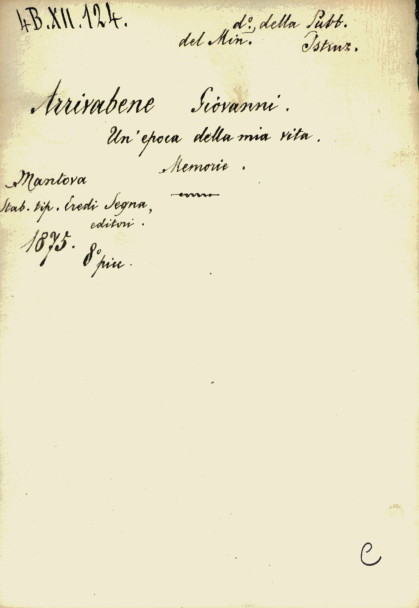 4B.XII.124.
d.º della Pubb.
del Min. Istruz.
Arrivabene Giovanni.
Un' epoca della mia vita.
Memorie.
Mantova
Stab. tip. Eredi Segna,
editori.
1875.
8º picc.
C